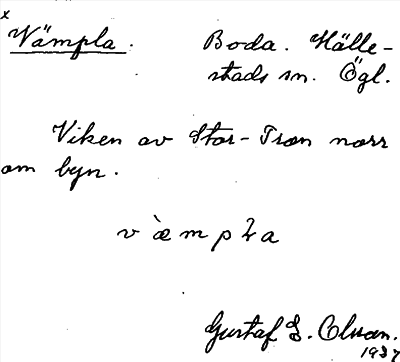 x
Vämpla. Boda. Hälle-
stads sn. Ögl.
Viken av Stor-Tron norr
om byn.
v æ̀ m p ɫ a
Gustaf E. Olsson.
1937